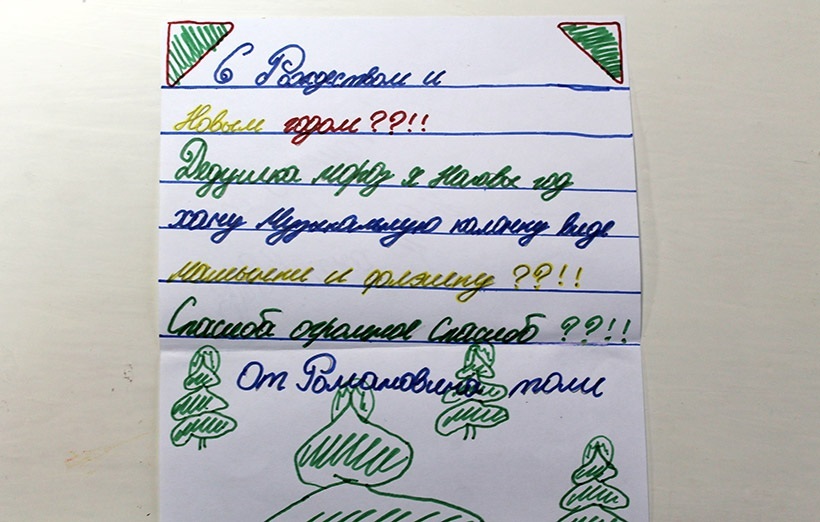 С Рождеством и
Новым годом ??!!
Дедушка мороз я на новы год
хачу музыкальную калонку виде
машынки и фолэшпу ??!!
Спасиба огромное Спасиб ??!!
От Романовича толи